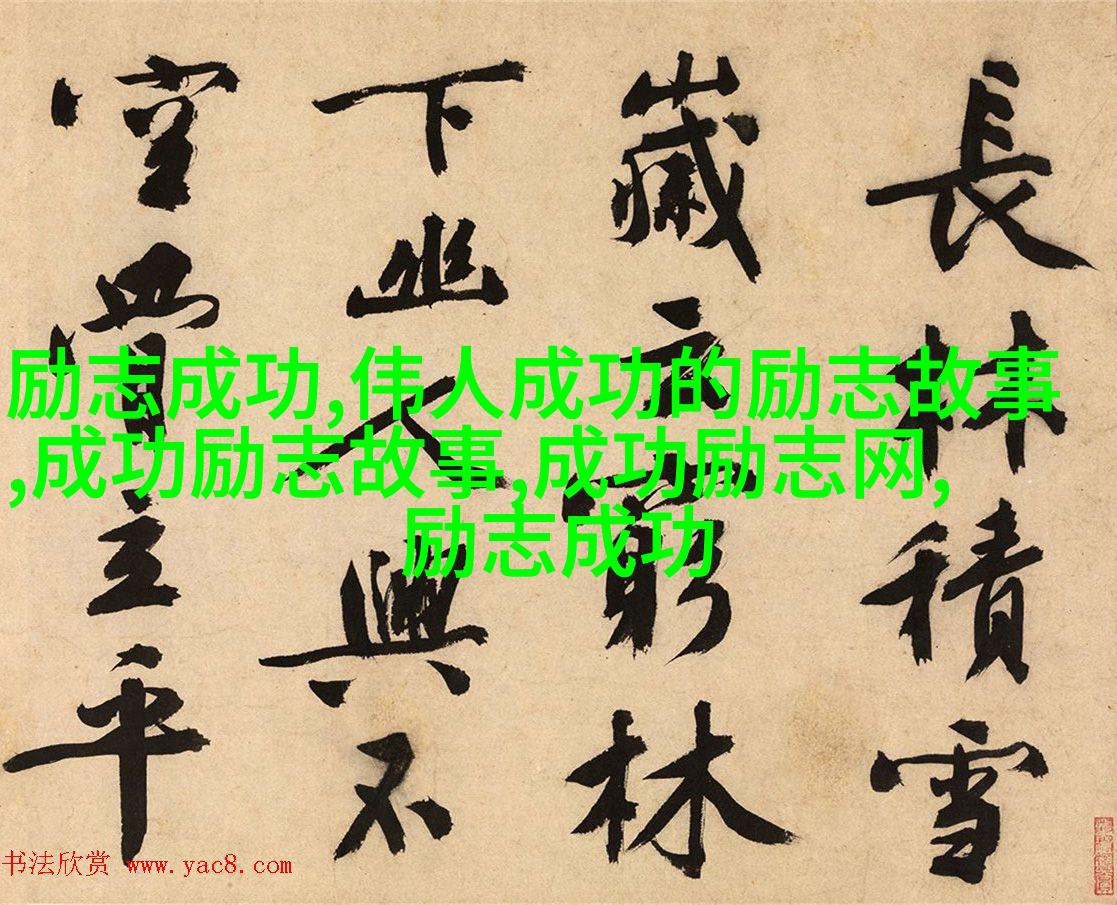 長林積雪
歲云窮林
下幽人興不
空立平
励志成功,伟人成功的励志故事
,成功励志故事,成功励志网,
励志成功
书法欣赏 www.yac8.com